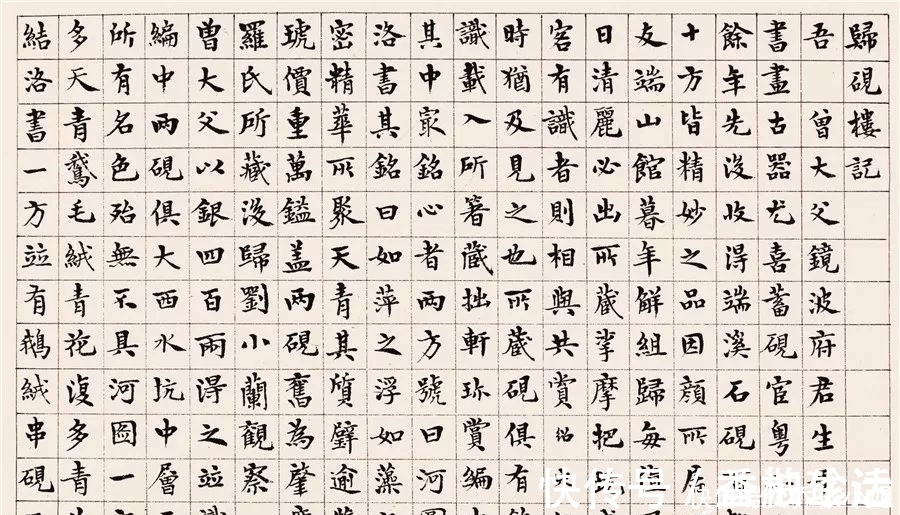 歸硯樓記
吾曾大父鏡波府君生
書畫古器尤喜蓄硯宦粵
餘年先沒收得端溪石硯
十方皆精妙之品因顏所居
友端山館暮年解組歸每
日清麗必出所藏挲摩把
客有識者則相與共賞
時猶及見之也所藏硯俱有
識載入所著藏拙軒珍賞編
其中㝡銘心者兩方號曰河
洛書其銘曰如萍之浮如藻
密精華所聚天青其質甓逾
琥價重萬鎰蓋兩硯舊為肇
羅氏所藏沒歸劉小蘭觀察
曾大父以銀四百兩得之竝
編中兩硯俱大西水坑中層
所有名色殆無不具河圖一
多天青鵞毛絨青花復多青
結洛書一方竝有鵝絨串硯